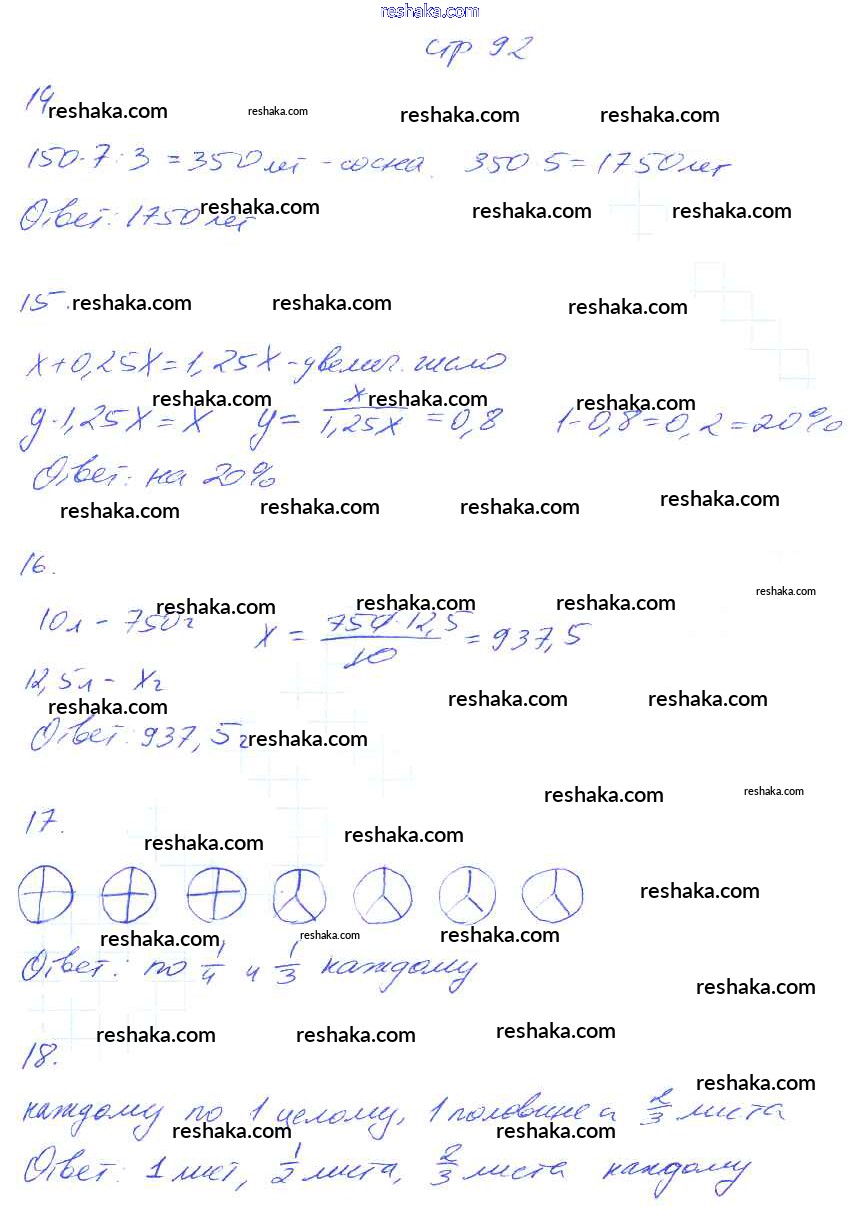 reshaka.com
стр 92
14 reshaka.com reshaka.com reshaka.com reshaka.com
150·7:3 = 350 лет - сосна. 350·5 = 1750 лет
Ответ: 1750 лет reshaka.com reshaka.com reshaka.com
15. reshaka.com reshaka.com reshaka.com
x+0,25x=1,25x - увелич. число
reshaka.com reshaka.com reshaka.com
y·1,25x = x y = x/1,25x = 0,8 1-0,8=0,2=20%
Ответ: на 20%
reshaka.com reshaka.com reshaka.com reshaka.com
16. reshaka.com
reshaka.com reshaka.com reshaka.com
10л - 750г x = 750·12,5/10 = 937,5
12,5л - xг
reshaka.com reshaka.com reshaka.com
Ответ: 937,5г reshaka.com
reshaka.com reshaka.com
17. reshaka.com reshaka.com
reshaka.com
reshaka.com reshaka.com reshaka.com
Ответ: по 1/4 и 1/3 каждому
reshaka.com
reshaka.com reshaka.com reshaka.com
18.
reshaka.com
каждому по 1 целому, 1 половине и 2/3 листа
reshaka.com reshaka.com
Ответ: 1 лист, 1/2 листа, 2/3 листа каждому